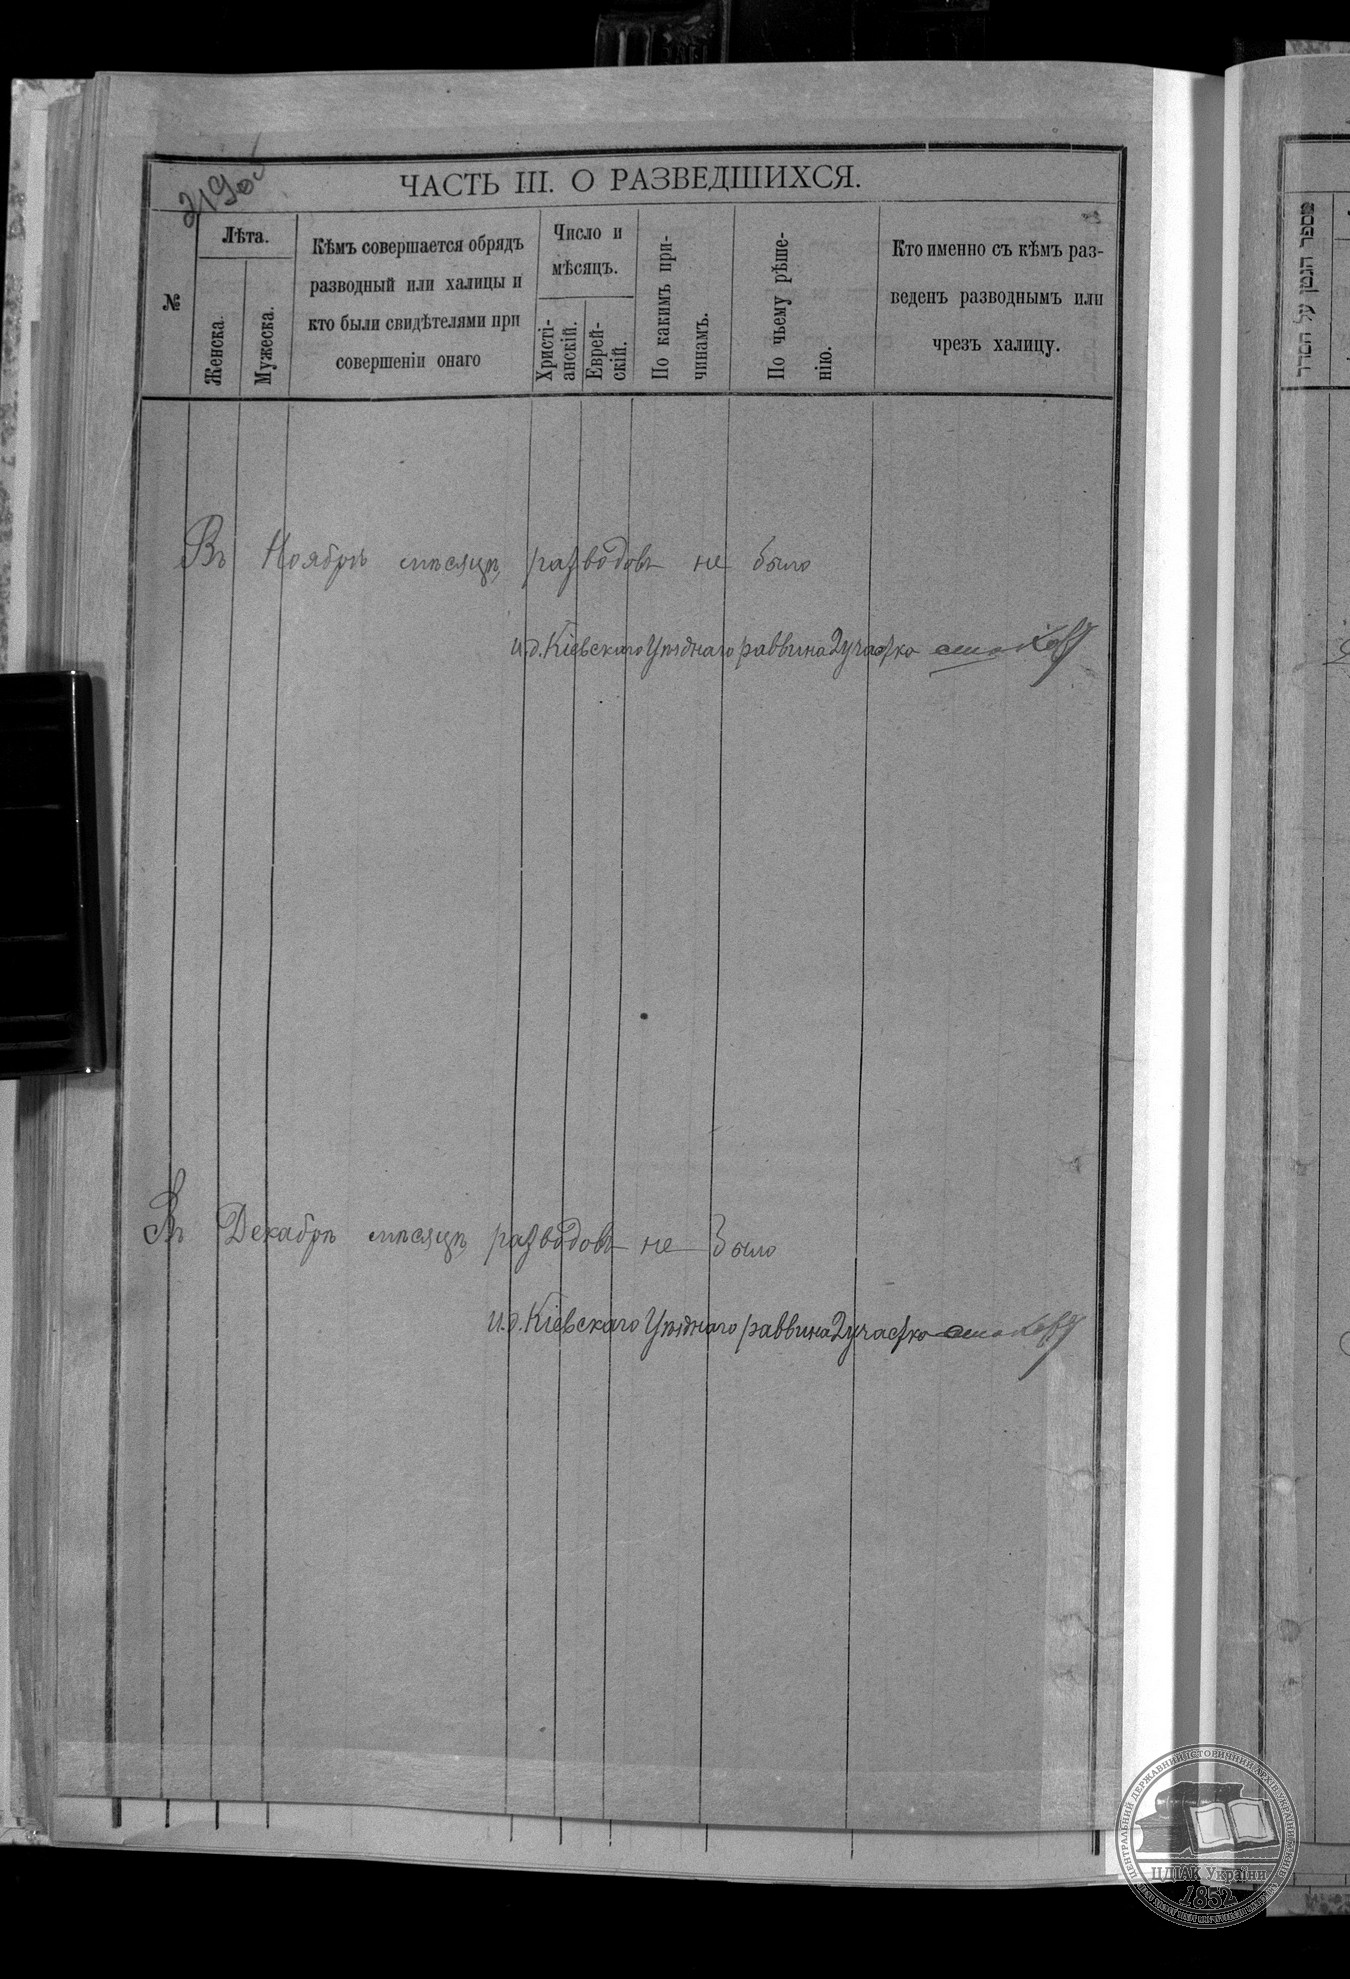 219об
ЧАСТЬ III. О РАЗВЕДШИХСЯ.
№
Лѣта.
Женска.
Мужеска.
Кѣмъ совершается обрядъ
разводный или халицы и
кто были свидѣтелями при
совершеніи онаго
Число и
мѣсяцъ.
Христі-
анскій.
Еврей-
скій.
По какимъ при-
чинамъ.
По чьему рѣше-
нію.
Кто именно съ кѣмъ раз-
веденъ разводнымъ или
чрезъ халицу.
Въ Ноябрѣ мѣсяцѣ разводовъ не было
И.д. Кіевскаго Уѣзднаго раввина 2 участка
Въ Декабрѣ мѣсяцѣ разводовъ не было
И.д. Кіевскаго Уѣзднаго раввина 2 участка
מספר הגטין על הסדר
ЦЕНТРАЛЬНИЙ ДЕРЖАВНИЙ ІСТОРИЧНИЙ АРХІВ УКРАЇНИ
ЦДІАК України
1852